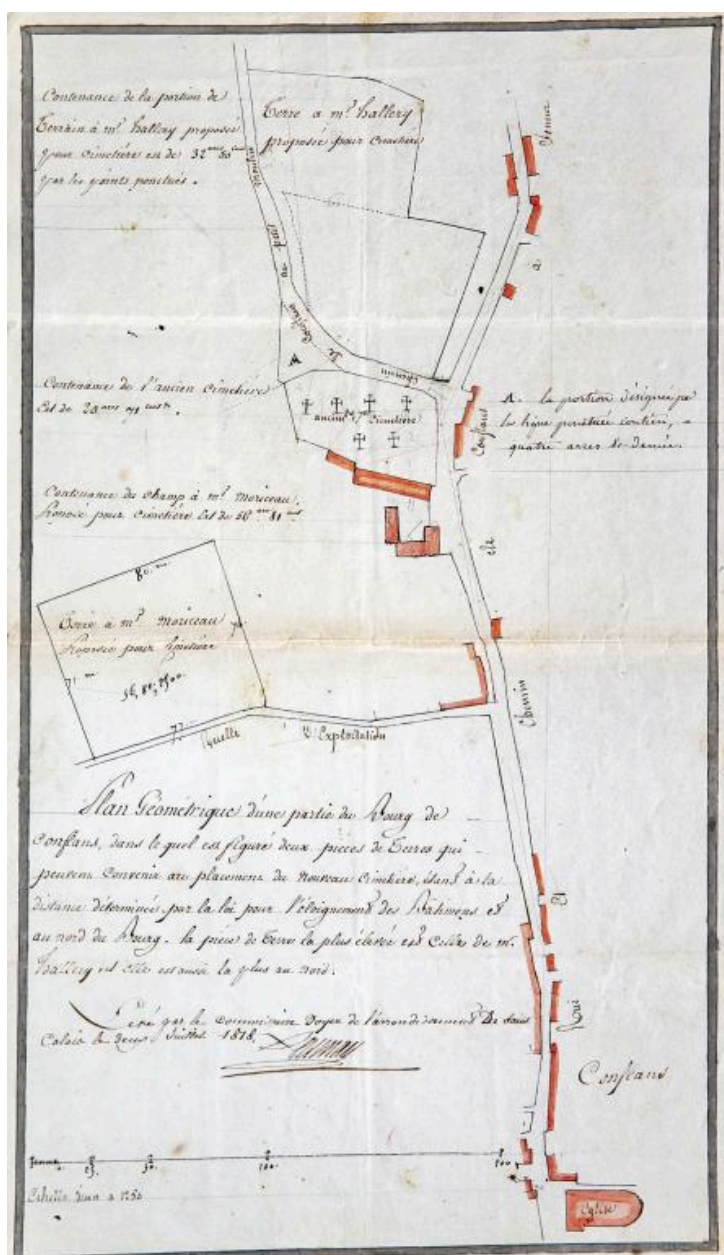 Contenance de la portion de
Terrain à mr. hallery proposée
pour cimetière est de 32 ares 50 cent
par les points ponctués.
Terre a mr. hallery
proposée pour cimetière
Chemin de au petit moulin
A
Contenance de l'ancien Cimetière
Est de 20 ares
ancien cimetière
A. la portion désignée par
la ligne ponctuée contien,
quatre arres & demie.
Contenance du champ à mr. moriceau
proposé pour cimetière Est de 56 ares 81 cent
80. m.
Terre à mr. moriceau
proposée pour cimetière
71 m
56, 80, 2500
77
Ruelle D'Exploitation
Chemin de Conflans a
Plan Géométrique d'une partie du Bourg de
Conflans, dans le quel est figuré deux pièces de Terres qui
peuvent Convenir au placement du nouveau Cimetière, étant à la
distance déterminée par la loi pour l'éloignement des Bâtimens et
au nord du Bourg. la pièce de Terre la plus élevée est Celle de mr.
hallery et elle est aussi la plus au nord.
Levé par le Commissaire Voyer de l'arrondissement De Saint
Calais le deux Juillet 1818.
Conflans
25. 50. 100. 200
Echelle d'un a 1250
Eglise